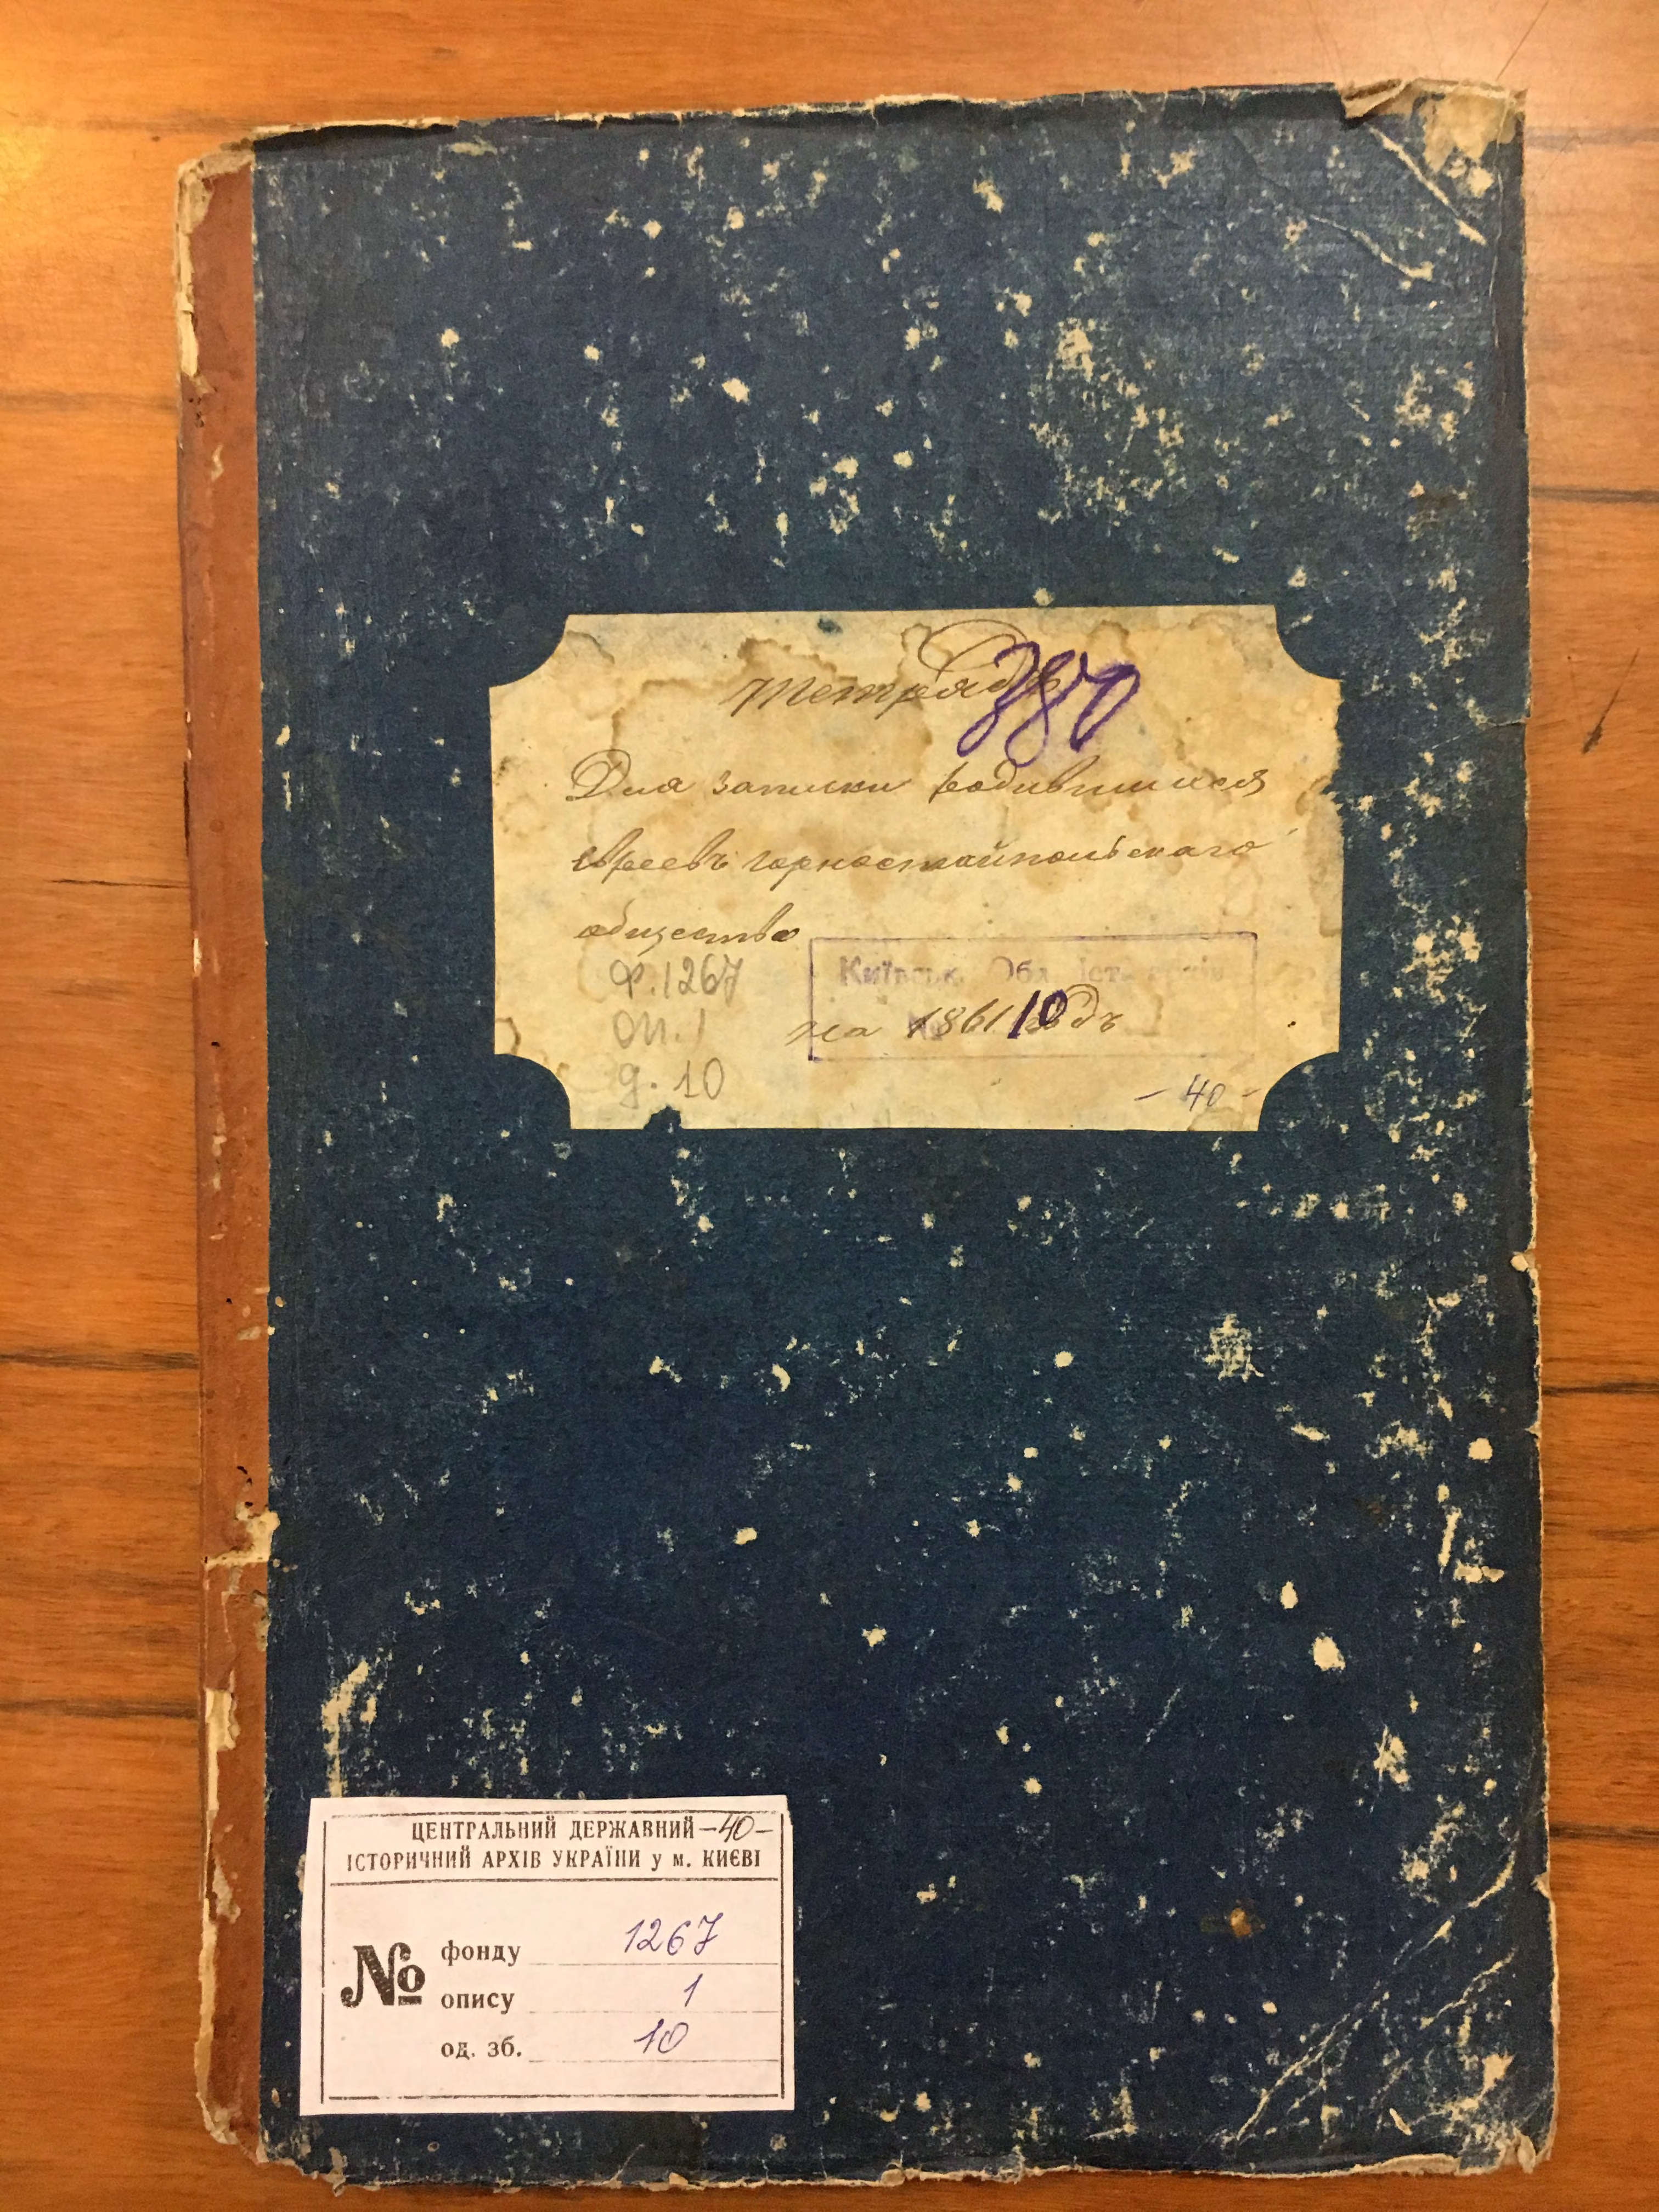 Тетрадь
380
Для записки родившихся
евреевъ горностайпольскаго
общества
Ф. 1267
Київськ. Обл. Іст. архів
оп. 1
№ 10
на 1861 годъ
д. 10
- 40 -
ЦЕНТРАЛЬНИЙ ДЕРЖАВНИЙ -40-
ІСТОРИЧНИЙ АРХІВ УКРАЇНИ у м. КИЄВІ
№
фонду 1267
опису 1
од. зб. 10